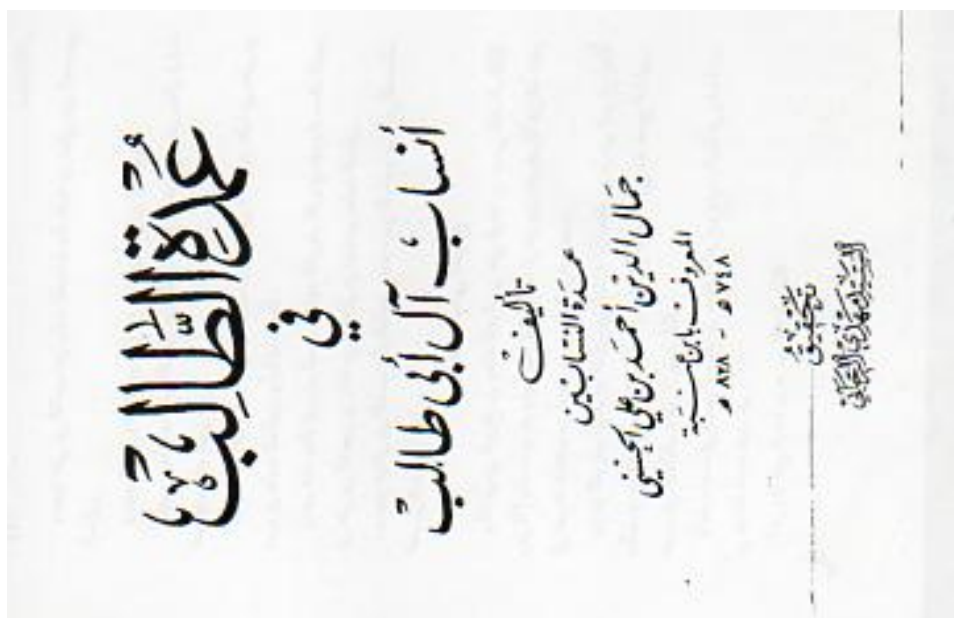 عُمْدَةُ الطَّالِبِ
في
أنساب آل أبي طالب
تأليف
عمدة النسّابين
جمال الدين أحمد بن علي الحسني
المعروف بابن عنبة
٧٤٨ هـ - ٨٢٨ هـ
تحقيق
السيد مهدي الرجائي